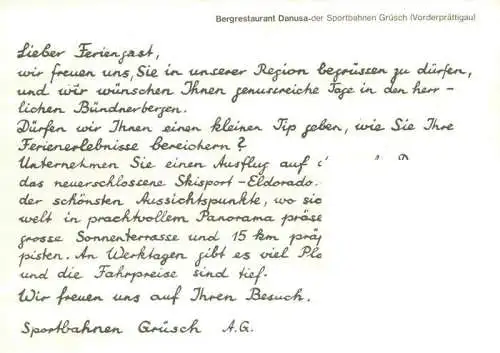 Bergrestaurant Danusa-der Sportbahnen Grüsch (Vorderprättigau)
Lieber Feriengast,
wir freuen uns, Sie in unserer Region begrüssen zu dürfen,
und wir wünschen Ihnen genussreiche Tage in den herr-
lichen Bündnerbergen.
Dürfen wir Ihnen einen kleinen Tip geben, wie Sie Ihre
Ferienerlebnisse bereichern?
Unternehmen Sie einen Ausflug auf
das neuerschlossene Skisport-Eldorado.
der schönsten Aussichtspunkte, wo sic
welt in prachtvollem Panorama präse
grosse Sonnenterrasse und 15 km präp
pisten. An Werktagen gibt es viel Pla
und die Fahrpreise sind tief.
Wir freuen uns auf Ihren Besuch.
Sportbahnen Grüsch A.G.